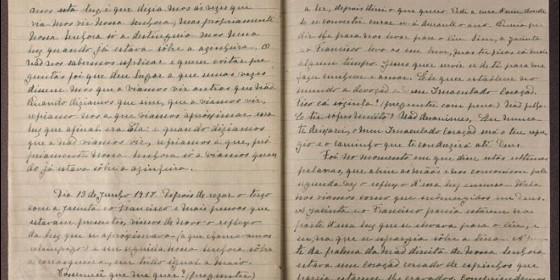 nossa esta luz, é que dizia mos ás vezes que
viamos vir Nossa Senhora, mas propriamente
Nossa Senhora só a destinguia mos nessa
luz quando já estava sôbre a azinheira. O
não nos sabermos explicar e querer evitar per
guntas foi que deu lugar a que umas vezes
dissesse mos que a viamos vir outras que não.
Quando diziamos que sim, que a viamos vir,
referia mos a que viamos aproximar-se essa
luz que afinal era Ela. E quando diziamos
que a não viamos vir, referia mos a que, pró
priamente Nossa Senhora só a viamos quan
do já estava sôbre a azinheira.
Dia 13 de Junho 1917. Depois de rezar o terço
com a Jacinta e o Francisco e mais pessoas que
estavam presentes, vimos de novo o reflexo
da luz que se aproximava (a que chamavamos
relâmpago) e em seguida Nossa Senhora sôbre
a carrasqueira, em tudo igual a Maio.
Vossemecê que me quer? (perguntei)
a ler, depois direi o que quero. Pedi a cura dum doente
se se converter curar-se-á durante o ano. Queria pe
dir-lhe para nos levar para o Céu. Sim, a Jacinta
e o Francisco levo-os em breve, mas tu ficas cá mais
algum tempo. Jesus quer servir-se de ti para me
fazer conhecer e amar. Ele quer estabelecer no
mundo a devoção a meu Imaculado Coração.
Fico cá sòzinha? (preguntei com pena) Não filha.
E tu sofres muito? Não desanimes, Eu nunca
te deixarei, o meu Imaculado Coração será o teu refu
gio e o caminho que te conduzirá até Deus.
Foi no momento em que disse estas ultimas
palavras, que abriu as mãos e nos comunicou pela
segunda vez o reflexo dessa luz imensa. Nela
nos viamos como que submergidos em Deus.
A Jacinta e o Francisco parecia estarem na
parte dessa luz que se elevava para o Céu, e
eu na que se espargia sôbre a terra. A fren
te da palma da mão direita de Nossa Senhora
estava um coração cercado de espinhos que
parecia estarem-lhe cravados. Compreendemos